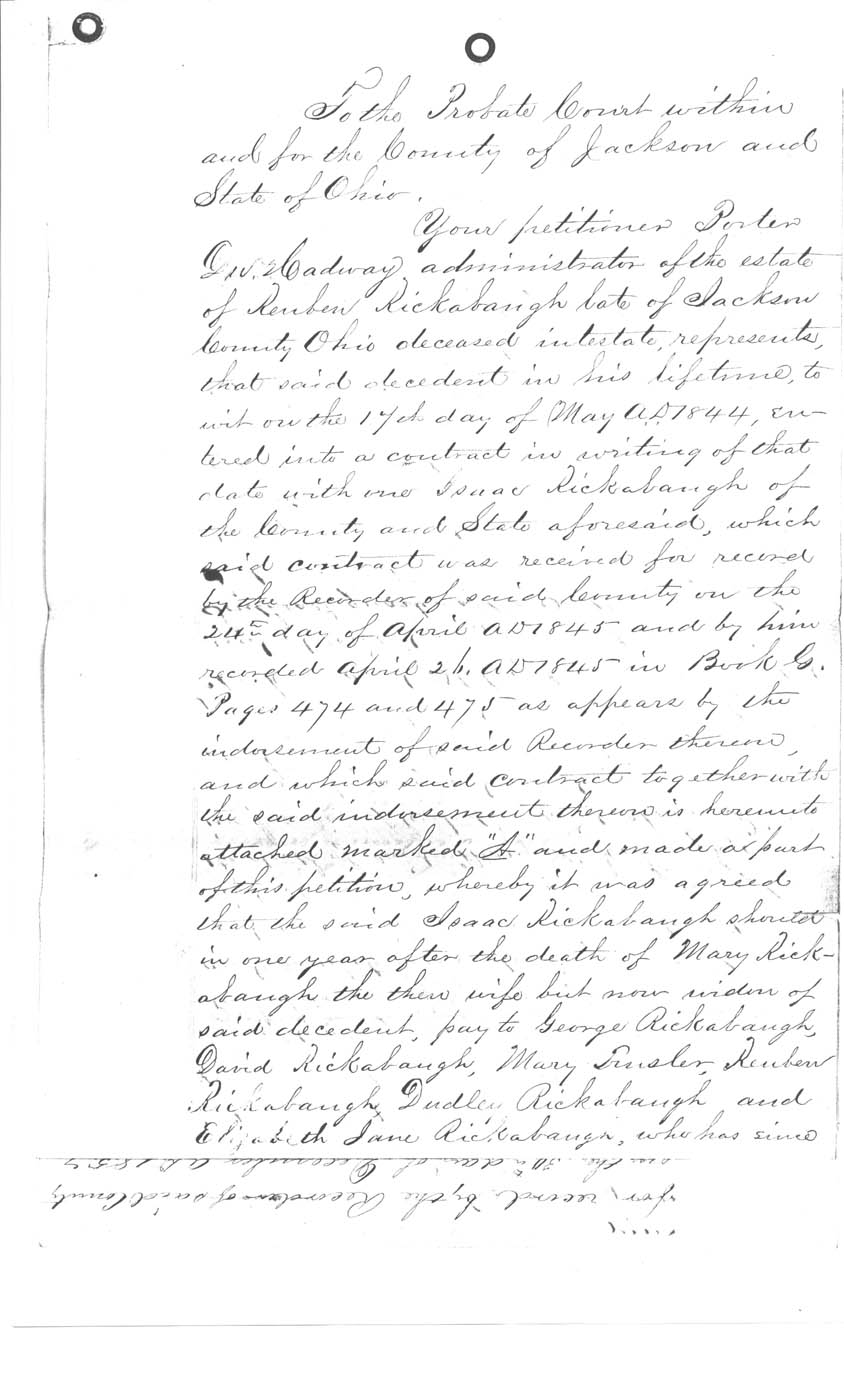 To the Probate Court within
and for the County of Jackson and
State of Ohio.
Your petitioner Porter
administrator of the estate
of Reuben Rickabaugh late of Jackson
County Ohio deceased intestate, represents,
that said decedent in his lifetime, to
wit on the 17th day of May A.D. 1844, en-
tered into a contract in writing of that
date with one Isaac Rickabaugh of
the County and State aforesaid, which
said contract was received for record
by the Recorder of said County on the
24th day of April AD 1845 and by him
recorded April 26. AD 1845 in Book G.
Pages 474 and 475 as appears by the
indorsement of said Recorder thereon,
and which said contract together with
the said indorsement thereon is hereunto
attached marked "A" and made a part
of this petition, whereby it was agreed
that the said Isaac Rickabaugh should
in one year after the death of Mary Rick-
abaugh the then wife but now widow of
said decedent, pay to George Rickabaugh,
David Rickabaugh, Mary Reuben
Rickabaugh, Dudley Rickabaugh and
Elizabeth Jane Rickabaugh, who has since
for record by the Recorder of said County
on the 30th day of December AD 185